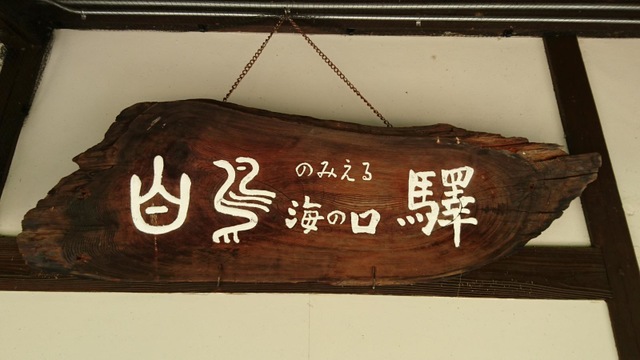 白鳥
のみえる
海の口
驛